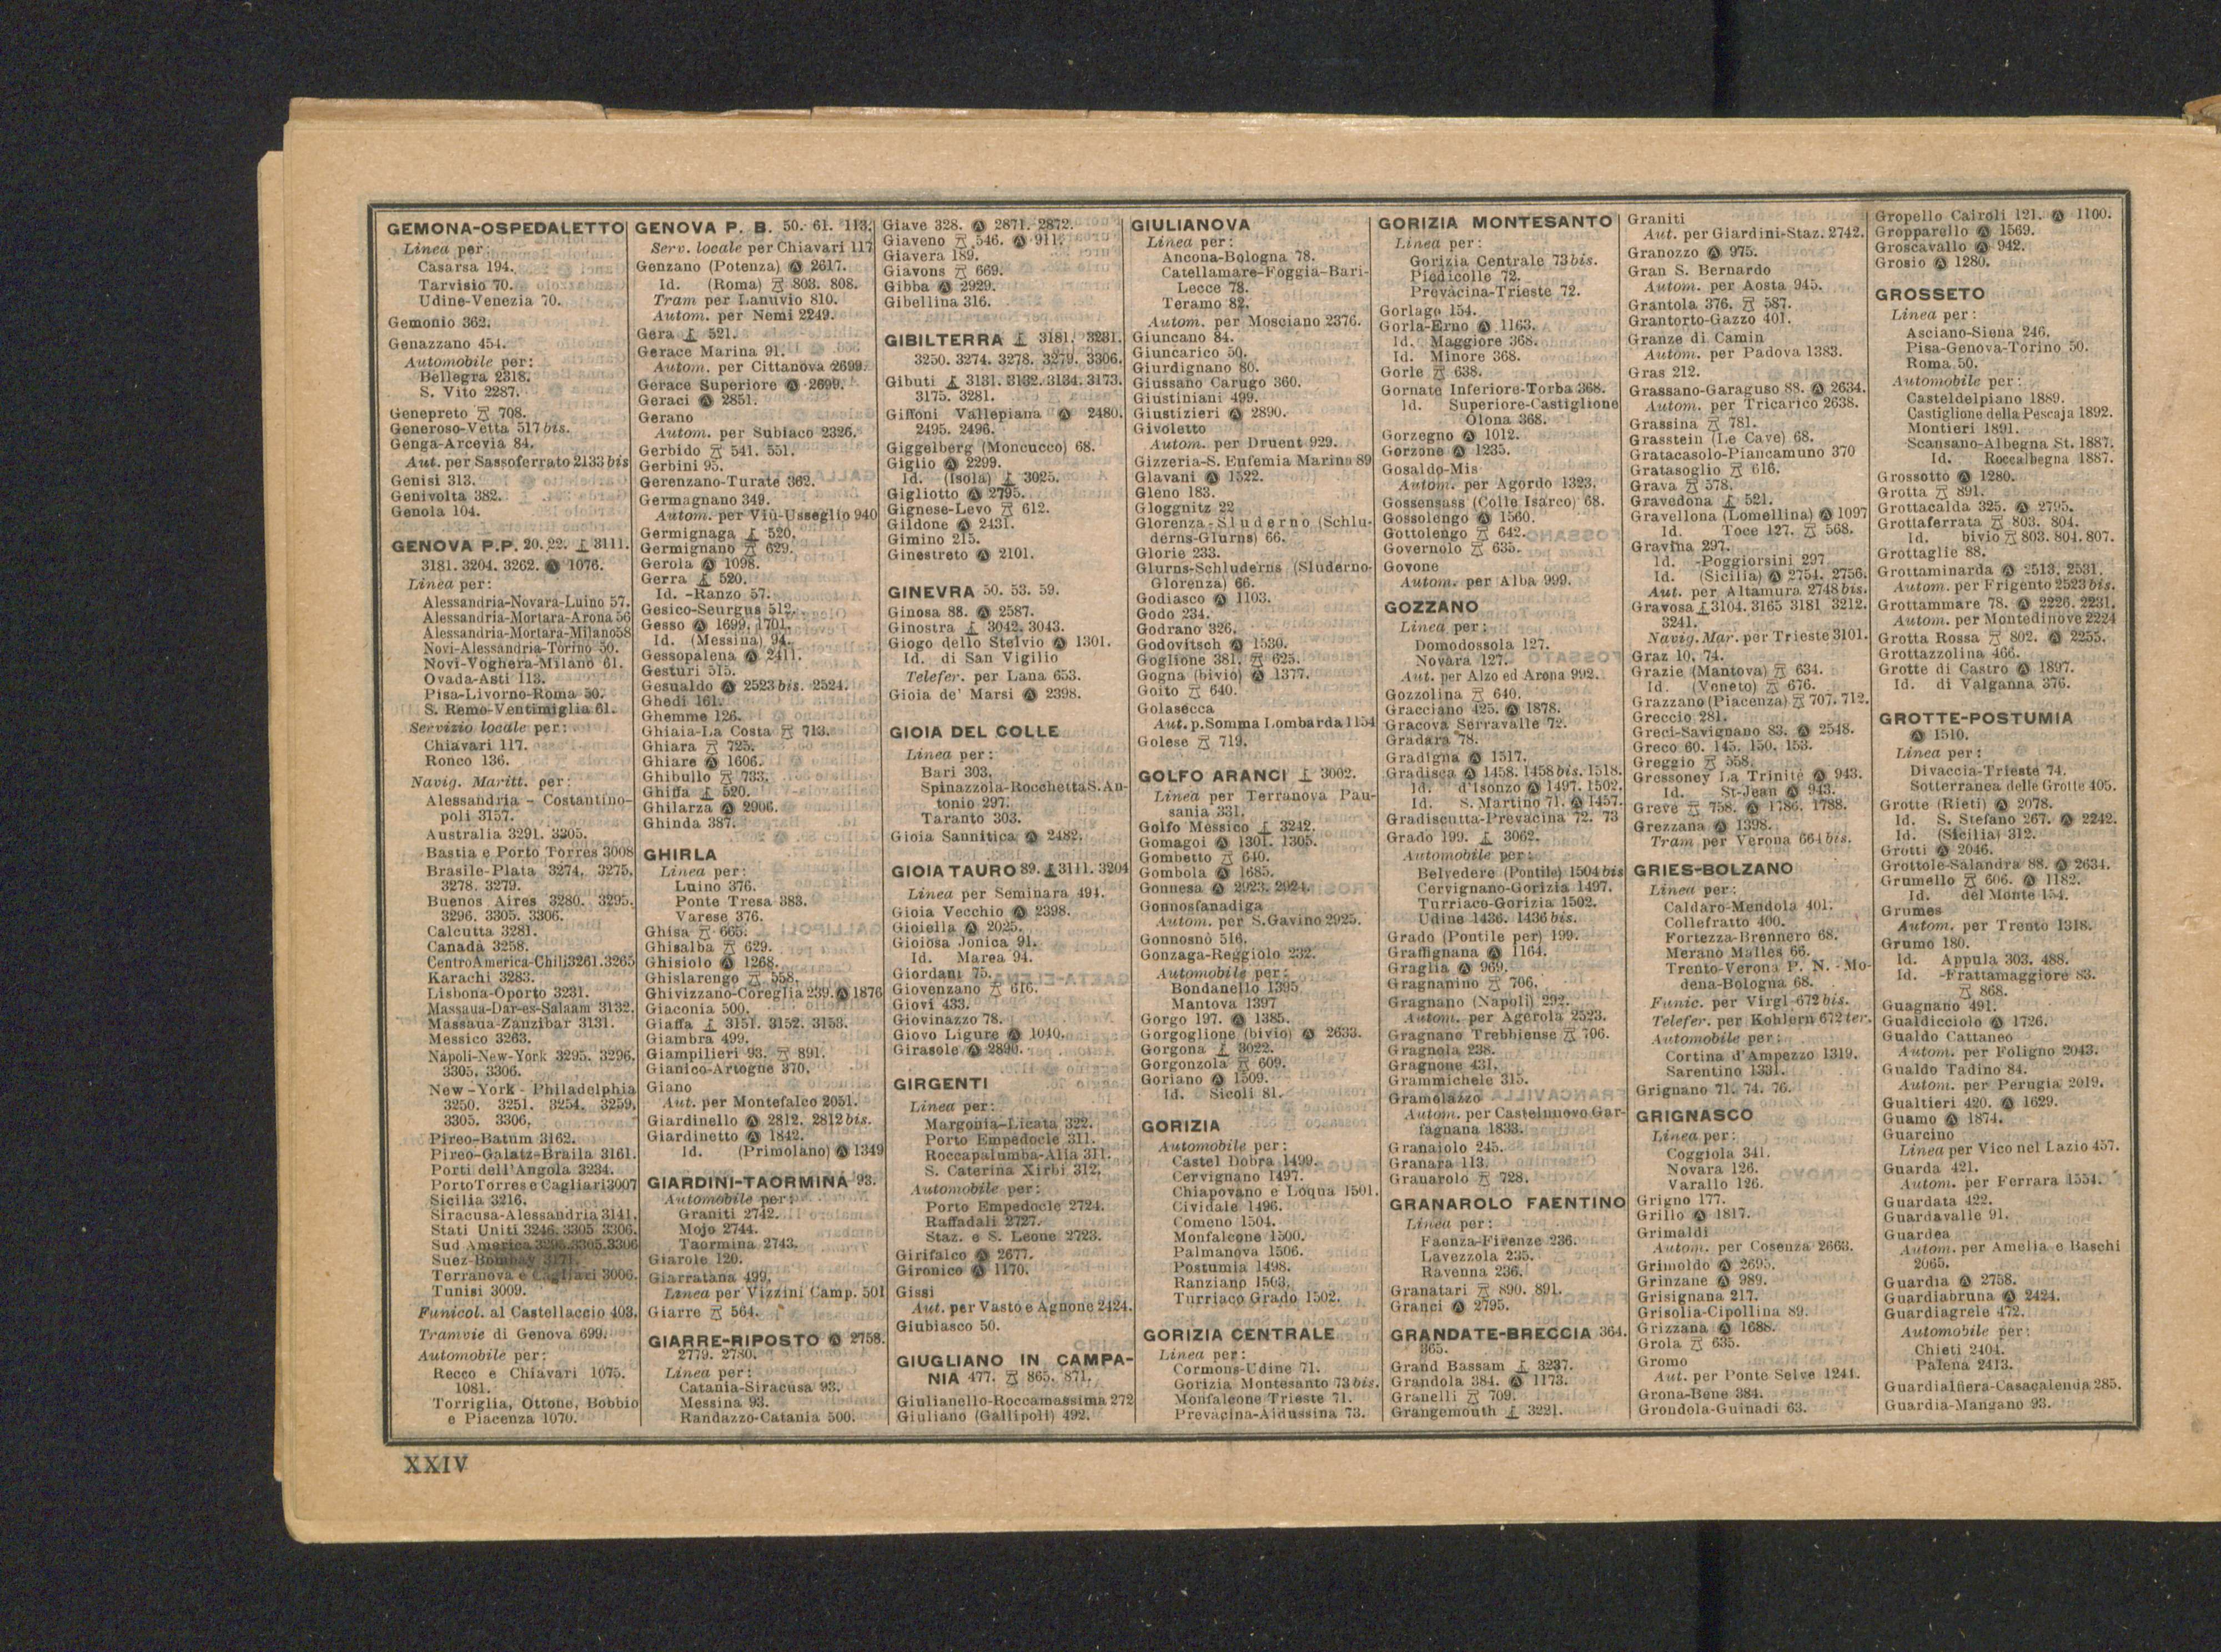 GEMONA-OSPEDALETTO
Linea per:
Casarsa 194.
Tarvisio 70.
Udine-Venezia 70.
Gemonio 362.
Genazzano 454.
Automobile per:
Bellegra 2318.
S. Vito 2287.
Genepreto 708.
Generoso-Vetta 517 bis.
Genga-Arcevia 84.
Aut. per Sassoferrato 2133 bis
Genisi 313.
Genivolta 382.
Genola 104.
GENOVA P.P. 20. 22. 3111.
3181. 3204. 3262. Ⓐ 1076.
Linea per:
Alessandria-Novara-Luino 57.
Alessandria-Mortara-Arona 56
Alessandria-Mortara-Milano 58
Novi-Alessandria-Torino 50.
Novi-Voghera-Milano 61.
Ovada-Asti 113.
Pisa-Livorno-Roma 50.
S. Remo-Ventimiglia 61.
Servizio locale per:
Chiavari 117.
Ronco 136.
Navig. Maritt. per:
Alessandria - Costantino-
poli 3157.
Australia 3291. 3305.
Bastia e Porto Torres 3008
Brasile-Plata 3274. 3275.
3278. 3279.
Buenos Aires 3280. 3295.
3296. 3305. 3306.
Calcutta 3281.
Canadà 3258.
Centro America-Chilì 3261. 3265
Karachi 3283.
Lisbona-Oporto 3231.
Massaua-Dar-es-Salaam 3132.
Massaua-Zanzibar 3131.
Messico 3263.
Napoli-New-York 3295. 3296.
3305. 3306.
New-York - Philadelphia
3250. 3251. 3254. 3259.
3305. 3306.
Pireo-Batum 3162.
Pireo-Galatz-Braila 3161.
Porti dell'Angola 3234.
Porto Torres e Cagliari 3007
Sicilia 3216.
Siracusa-Alessandria 3141.
Stati Uniti 3246. 3305. 3306.
Sud America 3296. 3305. 3306
Suez-Bombay 3171.
Terranova e Cagliari 3006.
Tunisi 3009.
Funicol. al Castellaccio 403.
Tramvie di Genova 699.
Automobile per:
Recco e Chiavari 1075.
1081.
Torriglia, Ottone, Bobbio
e Piacenza 1070.
GENOVA P. B. 50. 61. 113.
Serv. locale per Chiavari 117
Genzano (Potenza) Ⓐ 2617.
Id. (Roma) 803. 808.
Tram per Lanuvio 810.
Autom. per Nemi 2249.
Gera 521.
Gerace Marina 91.
Autom. per Cittanova 2699.
Gerace Superiore Ⓐ 2699.
Geraci Ⓐ 2851.
Gerano
Autom. per Subiaco 2326.
Gerbido 541. 551.
Gerbini 95.
Gerenzano-Turate 362.
Germagnano 349.
Autom. per Viù-Usseglio 940
Germignaga 520.
Germignano 629.
Gerola Ⓐ 1098.
Gerra 520.
Id. -Ranzo 57.
Gesico-Seurgus 512.
Gesso Ⓐ 1699. 1701.
Id. (Messina) 94.
Gessopalena Ⓐ 2411.
Gesturi 515.
Gesualdo Ⓐ 2523 bis. 2524.
Ghedi 161.
Ghemme 126.
Ghiaia-La Costa 713.
Ghiara 725.
Ghiare Ⓐ 1606.
Ghibullo 733.
Ghiffa 520.
Ghilarza Ⓐ 2906.
Ghinda 387.
GHIRLA
Linea per:
Luino 376.
Ponte Tresa 383.
Varese 376.
Ghisa 665.
Ghisalba 629.
Ghisiolo Ⓐ 1268.
Ghislarengo 558.
Ghivizzano-Coreglia 239. Ⓐ 1876
Giaconia 500.
Giaffa 3151. 3152. 3153.
Giambra 499.
Giampilieri 93. 891.
Gianico-Artogne 370.
Giano
Aut. per Montefalco 2051.
Giardinello Ⓐ 2812. 2812 bis.
Giardinetto Ⓐ 1842.
Id. (Primolano) Ⓐ 1349
GIARDINI-TAORMINA 93.
Automobile per:
Graniti 2742.
Mojo 2744.
Taormina 2743.
Giarole 120.
Giarratana 499.
Linea per Vizzini Camp. 501
Giarre 564.
GIARRE-RIPOSTO Ⓐ 2758.
2779. 2780.
Linea per:
Catania-Siracusa 93.
Messina 93.
Randazzo-Catania 500.
Giave 328. Ⓐ 2871. 2872.
Giaveno 546. Ⓐ 911.
Giavera 189.
Giavons 669.
Gibba Ⓐ 2929.
Gibellina 316.
GIBILTERRA 3181. 3231.
3250. 3274. 3278. 3279. 3306.
Gibuti 3131. 3132. 3134. 3173.
3175. 3281.
Giffoni Vallepiana Ⓐ 2480.
2495. 2496.
Giggelberg (Moncucco) 68.
Giglio Ⓐ 2299.
Id. (Isola) 3025.
Gigliotto Ⓐ 2795.
Gignese-Levo 612.
Gildone Ⓐ 2431.
Gimino 215.
Ginestreto Ⓐ 2101.
GINEVRA 50. 53. 59.
Ginosa 88. Ⓐ 2587.
Ginostra 3042. 3043.
Giogo dello Stelvio Ⓐ 1301.
Id. di San Vigilio
Telefer. per Lana 653.
Gioia de' Marsi Ⓐ 2398.
GIOIA DEL COLLE
Linea per:
Bari 303.
Spinazzola-Rocchetta S. An-
tonio 297.
Taranto 303.
Gioia Sannitica Ⓐ 2482.
GIOIA TAURO 89. 3111. 3204
Linea per Seminara 494.
Gioia Vecchio Ⓐ 2398.
Gioiella Ⓐ 2025.
Gioiosa Jonica 91.
Id. Marea 94.
Giordani 75.
Giovenzano 616.
Giovi 433.
Giovinazzo 78.
Giovo Ligure Ⓐ 1040.
Girasole Ⓐ 2890.
GIRGENTI
Linea per:
Margonia-Licata 322.
Porto Empedocle 311.
Roccapalumba-Alia 311.
S. Caterina Xirbi 312.
Automobile per:
Porto Empedocle 2724.
Raffadali 2727.
Staz. e S. Leone 2723.
Girifalco Ⓐ 2677.
Gironico Ⓐ 1170.
Gissi
Aut. per Vasto e Agnone 2424.
Giubiasco 50.
GIUGLIANO IN CAMPA-
NIA 477. 865. 871.
Giulianello-Roccamassima 272
Giuliano (Gallipoli) 492.
GIULIANOVA
Linea per:
Ancona-Bologna 78.
Catellamare-Foggia-Bari-
Lecce 78.
Teramo 82.
Autom. per Mosciano 2376.
Giuncano 84.
Giuncarico 50.
Giurdignano 80.
Giussano Carugo 360.
Giustiniani 499.
Giustizieri Ⓐ 2890.
Givoletto
Autom. per Druent 929.
Gizzeria-S. Eufemia Marina 89
Glavani Ⓐ 1522.
Gleno 183.
Gloggnitz 22
Glorenza-Sluderno (Schlu-
derns-Glurns) 66.
Glorie 233.
Glurns-Schluderns (Sluderno-
Glorenza) 66.
Godiasco Ⓐ 1103.
Godo 234.
Godrano 326.
Godovitsch Ⓐ 1530.
Goglione 381. 625.
Gogna (bivio) Ⓐ 1377.
Goito 640.
Golasecca
Aut. p. Somma Lombarda 1154
Golese 719.
GOLFO ARANCI 3002.
Linea per Terranova Pau-
sania 331.
Golfo Messico 3242.
Gomagoi Ⓐ 1301. 1305.
Gombetto 640.
Gombola Ⓐ 1685.
Gonnesa Ⓐ 2923. 2924.
Gonnosfanadiga
Autom. per S. Gavino 2925.
Gonnosnò 516.
Gonzaga-Reggiolo 232.
Automobile per:
Bondanello 1395.
Mantova 1397
Gorgo 197. Ⓐ 1385.
Gorgoglione (bivio) Ⓐ 2633.
Gorgona 3022.
Gorgonzola 609.
Goriano Ⓐ 1509.
Id. Sicoli 81.
GORIZIA
Automobile per:
Castel Dobra 1499.
Cervignano 1497.
Chiapovano e Loqua 1501.
Cividale 1496.
Comeno 1504.
Monfalcone 1500.
Palmanova 1506.
Postumia 1498.
Ranziano 1503.
Turriaco Grado 1502.
GORIZIA CENTRALE
Linea per:
Cormons-Udine 71.
Gorizia Montesanto 73 bis.
Monfalcone Trieste 71.
Prevàcina-Aidussina 73.
GORIZIA MONTESANTO
Linea per:
Gorizia Centrale 73 bis.
Piedicolle 72.
Prevàcina-Trieste 72.
Gorlago 154.
Gorla-Erno Ⓐ 1163.
Id. Maggiore 368.
Id. Minore 368.
Gorle 638.
Gornate Inferiore-Torba 368.
Id. Superiore-Castiglione
Olona 368.
Gorzegno Ⓐ 1012.
Gorzone Ⓐ 1235.
Gosaldo-Mis
Autom. per Agordo 1323.
Gossensass (Colle Isarco) 68.
Gossolengo Ⓐ 1560.
Gottolengo 642.
Governolo 635.
Govone
Autom. per Alba 999.
GOZZANO
Linea per:
Domodossola 127.
Novara 127.
Aut. per Alzo ed Arona 992.
Gozzolina 640.
Gracciano 425. Ⓐ 1878.
Gracova Serravalle 72.
Gradara 78.
Gradigna Ⓐ 1517.
Gradisca Ⓐ 1458. 1458 bis. 1518.
Id. d'Isonzo Ⓐ 1497. 1502.
Id. S. Martino 71. Ⓐ 1457.
Gradiscutta-Prevacina 72. 73
Grado 199. 3062.
Automobile per:
Belvedere (Pontile) 1504 bis
Cervignano-Gorizia 1497.
Turriaco-Gorizia 1502.
Udine 1436. 1436 bis.
Grado (Pontile per) 199.
Graffignana Ⓐ 1164.
Graglia Ⓐ 969.
Gragnanino 706.
Gragnano (Napoli) 292.
Autom. per Agerola 2523.
Gragnano Trebbiense 706.
Gragnola 238.
Gragnone 431.
Grammichele 315.
Gramolazzo
Autom. per Castelnuovo Gar-
fagnana 1833.
Granaiolo 245.
Granara 113.
Granarolo 728.
GRANAROLO FAENTINO
Linea per:
Faenza-Firenze 236.
Lavezzola 235.
Ravenna 236.
Granatari 890. 891.
Granci Ⓐ 2795.
GRANDATE-BRECCIA 364.
365.
Grand Bassam 3237.
Grandola 384. Ⓐ 1173.
Granelli 709.
Grangemouth 3221.
Graniti
Aut. per Giardini-Staz. 2742.
Granozzo Ⓐ 975.
Gran S. Bernardo
Autom. per Aosta 945.
Grantola 376. 587.
Grantorto-Gazzo 401.
Granze di Camin
Autom. per Padova 1383.
Gras 212.
Grassano-Garaguso 88. Ⓐ 2634.
Autom. per Tricarico 2638.
Grassina 781.
Grasstein (Le Cave) 68.
Gratacasolo-Piancamuno 370
Gratasoglio 616.
Grava 578.
Gravedona 521.
Gravellona (Lomellina) Ⓐ 1097
Id. Toce 127. 568.
Gravina 297.
Id. -Poggiorsini 297
Id. (Sicilia) Ⓐ 2754. 2756.
Aut. per Altamura 2748 bis.
Gravosa 3104. 3165 3181 3212.
3241.
Navig. Mar. per Trieste 3101.
Graz 10. 74.
Grazie (Mantova) 634.
Id. (Veneto) 676.
Grazzano (Piacenza) 707. 712.
Greccio 281.
Greci-Savignano 83. Ⓐ 2548.
Greco 60. 145. 150. 153.
Greggio 558.
Gressoney La Trinité Ⓐ 943.
Id. St-Jean Ⓐ 943.
Greve 758. Ⓐ 1786. 1788.
Grezzana Ⓐ 1398.
Tram per Verona 664 bis.
GRIES-BOLZANO
Linea per:
Caldaro-Mendola 401.
Collefratto 400.
Fortezza-Brennero 68.
Merano Malles 66.
Trento-Verona P. N. - Mo-
dena-Bologna 68.
Funic. per Virgl 672 bis.
Telefer. per Kohlern 672 ter.
Automobile per:
Cortina d'Ampezzo 1319.
Sarentino 1331.
Grignano 71. 74. 76.
GRIGNASCO
Linea per:
Coggiola 341.
Novara 126.
Varallo 126.
Grigno 177.
Grillo Ⓐ 1817.
Grimaldi
Autom. per Cosenza 2663.
Grimoldo Ⓐ 2695.
Grinzane Ⓐ 989.
Grisignana 217.
Grisolia-Cipollina 89.
Grizzana Ⓐ 1688.
Grola 635.
Gromo
Aut. per Ponte Selve 1241.
Grona-Bene 384.
Grondola-Guinadi 63.
Gropello Cairoli 121. Ⓐ 1100.
Gropparello Ⓐ 1569.
Groscavallo Ⓐ 942.
Grosio Ⓐ 1280.
GROSSETO
Linea per:
Asciano-Siena 246.
Pisa-Genova-Torino 50.
Roma 50.
Automobile per:
Casteldelpiano 1889.
Castiglione della Pescaja 1892.
Montieri 1891.
Scansano-Albegna St. 1887.
Id. Roccalbegna 1887.
Grossotto Ⓐ 1280.
Grotta 891.
Grottacalda 325. Ⓐ 2795.
Grottaferrata 803. 804.
Id. bivio 803. 804. 807.
Grottaglie 88.
Grottaminarda Ⓐ 2513. 2531.
Autom. per Frigento 2523 bis.
Grottammare 78. Ⓐ 2226. 2231.
Autom. per Montedinove 2224
Grotta Rossa 802. Ⓐ 2255.
Grottazzolina 466.
Grotte di Castro Ⓐ 1897.
Id. di Valganna 376.
GROTTE-POSTUMIA
Ⓐ 1510.
Linea per:
Divaccia-Trieste 74.
Sotterranea delle Grotte 405.
Grotte (Rieti) Ⓐ 2078.
Id. S. Stefano 267. Ⓐ 2242.
Id. (Sicilia) 312.
Grotti Ⓐ 2046.
Grottole-Salandra 88. Ⓐ 2634.
Grumello 606. Ⓐ 1182.
Id. del Monte 154.
Grumes
Autom. per Trento 1318.
Grumo 180.
Id. Appula 303. 488.
Id. -Frattamaggiore 83.
868.
Guagnano 491.
Gualdicciolo Ⓐ 1726.
Gualdo Cattaneo
Autom. per Foligno 2043.
Gualdo Tadino 84.
Autom. per Perugia 2019.
Gualtieri 420. Ⓐ 1629.
Guamo Ⓐ 1874.
Guarcino
Linea per Vico nel Lazio 457.
Guarda 421.
Autom. per Ferrara 1554.
Guardata 422.
Guardavalle 91.
Guardea
Autom. per Amelia e Baschi
2065.
Guardia Ⓐ 2758.
Guardiabruna Ⓐ 2424.
Guardiagrele 472.
Automobile per:
Chieti 2404.
Palena 2413.
Guardialfiera-Casacalenda 285.
Guardia-Mangano 93.
XXIV